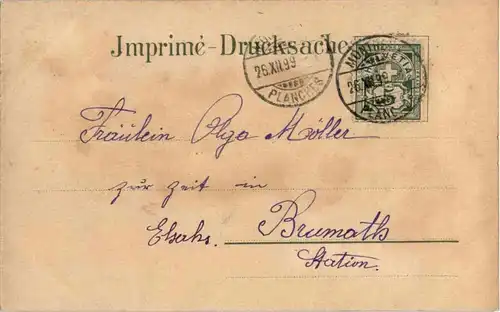 Imprimé-Drucksache
26.XII.99
PLANCHES
HELVETIA
26.XII.99
Fräulein Olga Möller
zur Zeit in
Elsahs. Brumath
Station.